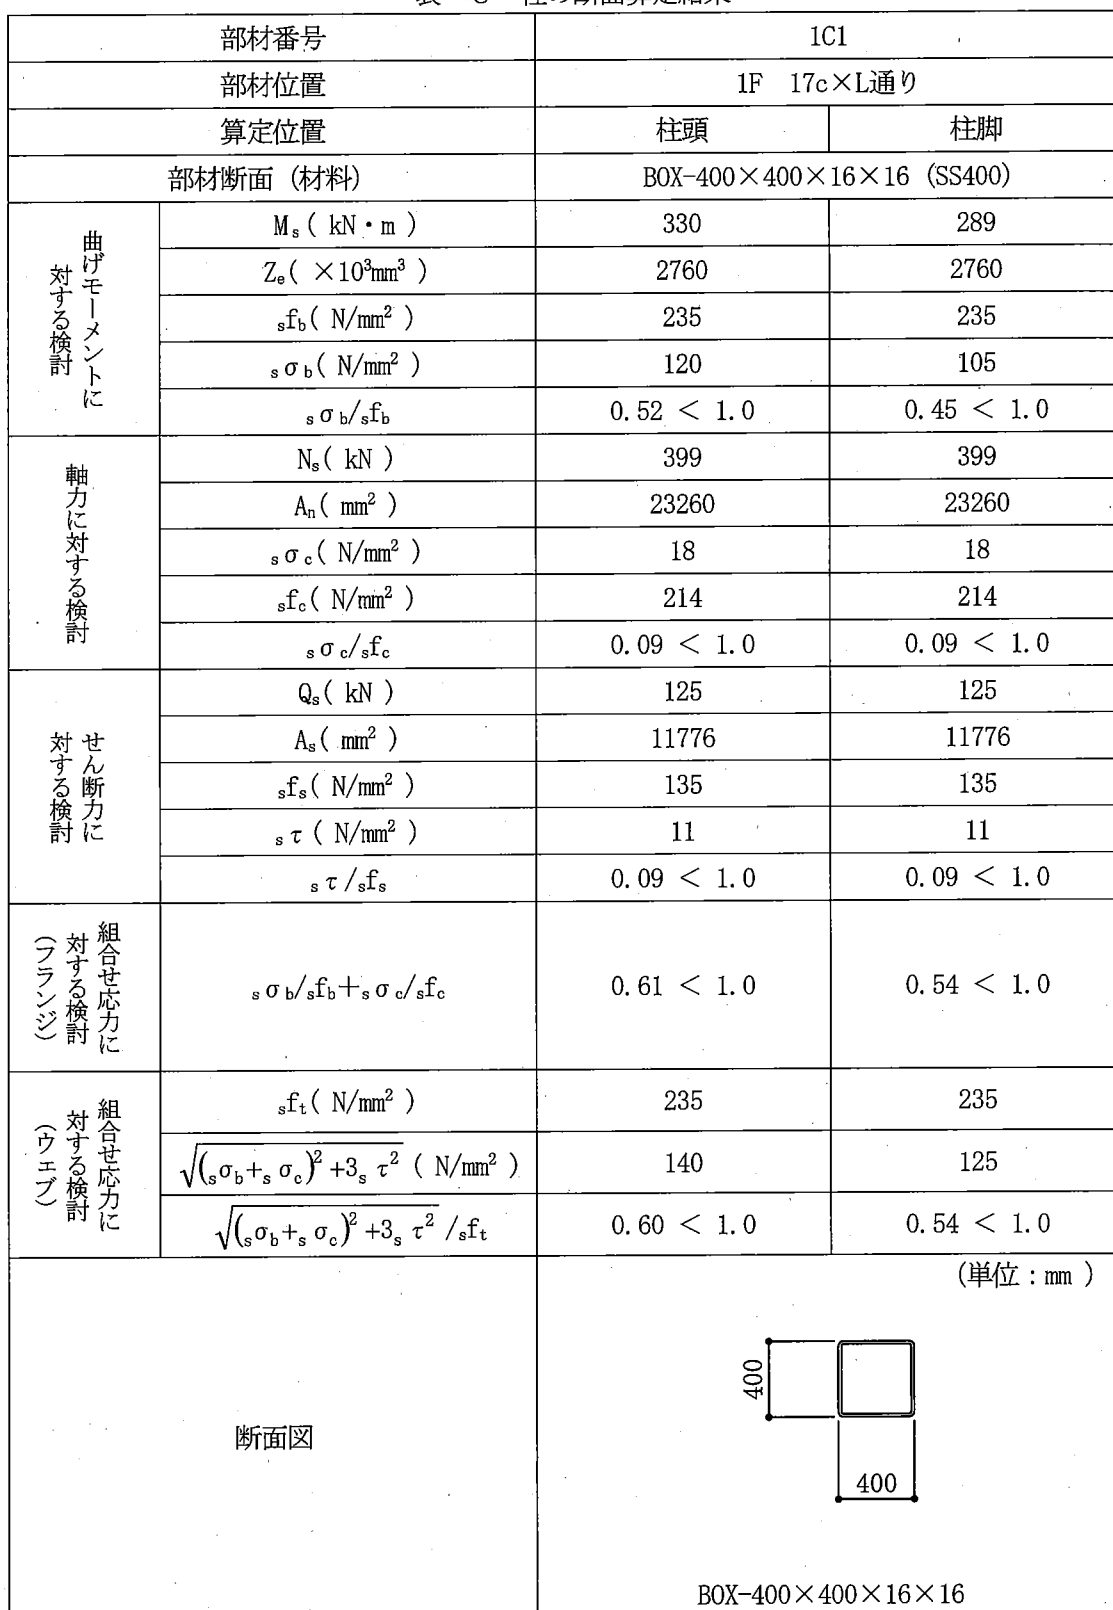 部材番号 1C1
部材位置 1F 17c×L通り
算定位置 柱頭 柱脚
部材断面（材料） BOX-400×400×16×16 (SS400)
曲げモーメントに
対する検討
Ms( kN・m ) 330 289
Ze( ×10³mm³ ) 2760 2760
sfb( N/mm² ) 235 235
sσb( N/mm² ) 120 105
sσb/sfb 0.52 < 1.0 0.45 < 1.0
軸力に対する検討
Ns( kN ) 399 399
An( mm² ) 23260 23260
sσc( N/mm² ) 18 18
sfc( N/mm² ) 214 214
sσc/sfc 0.09 < 1.0 0.09 < 1.0
せん断力に
対する検討
Qs( kN ) 125 125
As( mm² ) 11776 11776
sfs( N/mm² ) 135 135
sτ( N/mm² ) 11 11
sτ/sfs 0.09 < 1.0 0.09 < 1.0
組合せ応力に
対する検討
（フランジ）
sσb/sfb+sσc/sfc 0.61 < 1.0 0.54 < 1.0
組合せ応力に
対する検討
（ウェブ）
sft( N/mm² ) 235 235
√(sσb+sσc)²+3sτ² ( N/mm² ) 140 125
√(sσb+sσc)²+3sτ² /sft 0.60 < 1.0 0.54 < 1.0
断面図
(単位：mm )
400
400
BOX-400×400×16×16